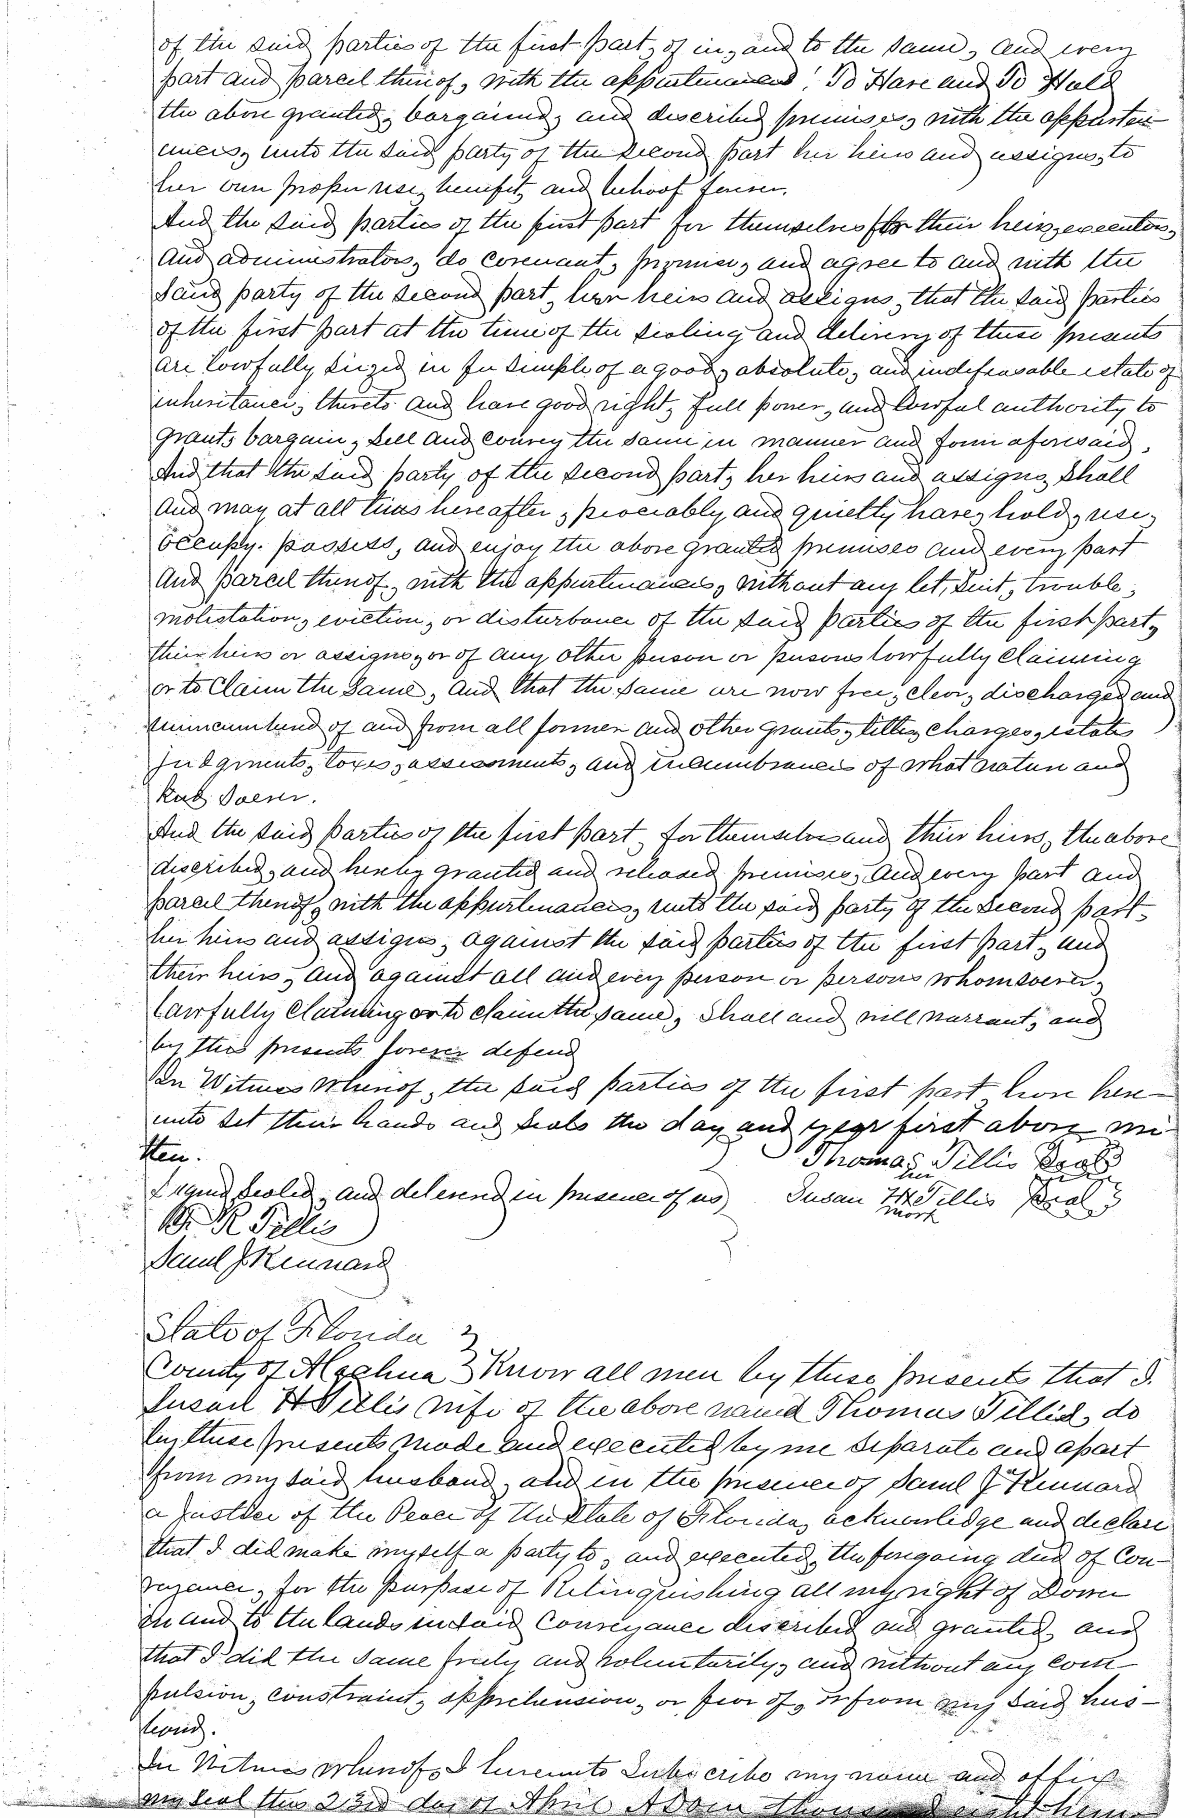 of the said parties of the first part, of in, and to the same, and every
part and parcel thereof, with the appurtenances! To Have and To Hold
the above granted, bargained, and described premises, with the appurten-
ances, unto the said party of the second part her heirs and assigns, to
her own proper use, benefit, and behoof forever.
And the said parties of the first part for themselves for their heirs, executors,
and administrators, do covenant, promise, and agree to and with the
said party of the second part, her heirs and assigns, that the said parties
of the first part at the time of the sealing and delivery of these presents
are lawfully siezed in fee simple of a good, absolute, and indefeasable estate of
inheritance, thereto and have good right, full power, and lawful authority to
grant, bargain, sell and convey the same in manner and form aforesaid,
And that the said party of the second part, her heirs and assigns, shall
and may at all times hereafter, peaceably and quietly have, hold, use,
occupy. possess, and enjoy the above granted premises and every part
and parcel thereof, with the appurtenances, without any let, suit, trouble,
molestation, eviction, or disturbance of the said parties of the first part,
their heirs or assigns, or of any other person or persons lawfully claiming
or to claim the same, and that the same are now free, clear, discharged and
unincumbered of and from all former and other grants, titles, charges, estates
judgments, taxes, assessments, and incumbrances of what nature and
kind soever.
And the said parties of the first part, for themselves and their heirs, the above
discribed, and hereby granted and released premises, and every part and
parcel thereof, with the appurtenances, unto the said party of the second part,
her heirs and assigns, against the said parties of the first part, and
their heirs, and against all and every person or persons whomsoever,
lawfully claiming or to claim the same, shall and will warrant, and
by these presents forever defend
In Witness whereof, the said parties of the first part have here-
unto set their hands and seals the day and year first above wri-
tten.
Thomas Tillis Seal
Signed, Sealed, and delivered in presence of us
her
Susan H X Tillis Seal
mark
R Tillis
Saml J Kennard
State of Florida
County of Alachua Know all men by these presents that I.
Susan H Tillis wife of the above named Thomas Tillis, do
by these presents made and executed by me separate and apart
from my said husband, and in the presence of Saml J Kennard
a Justice of the Peace of the State of Florida, acknowledge and declare
that I did make myself a party to, and executed, the foregoing deed of Con-
veyance, for the purpose of Relinquishing all my right of Dower
in and to the lands in said Conveyance discribed and granted, and
that I did the same freely and voluntarily, and without any com-
pulsion, constraint, apprehension, or fear of, or from my said hus-
band.
In Witness whereof, I hereunto Subscribe my name and affix
my seal this 23rd day of April A D one thousand eight hun-